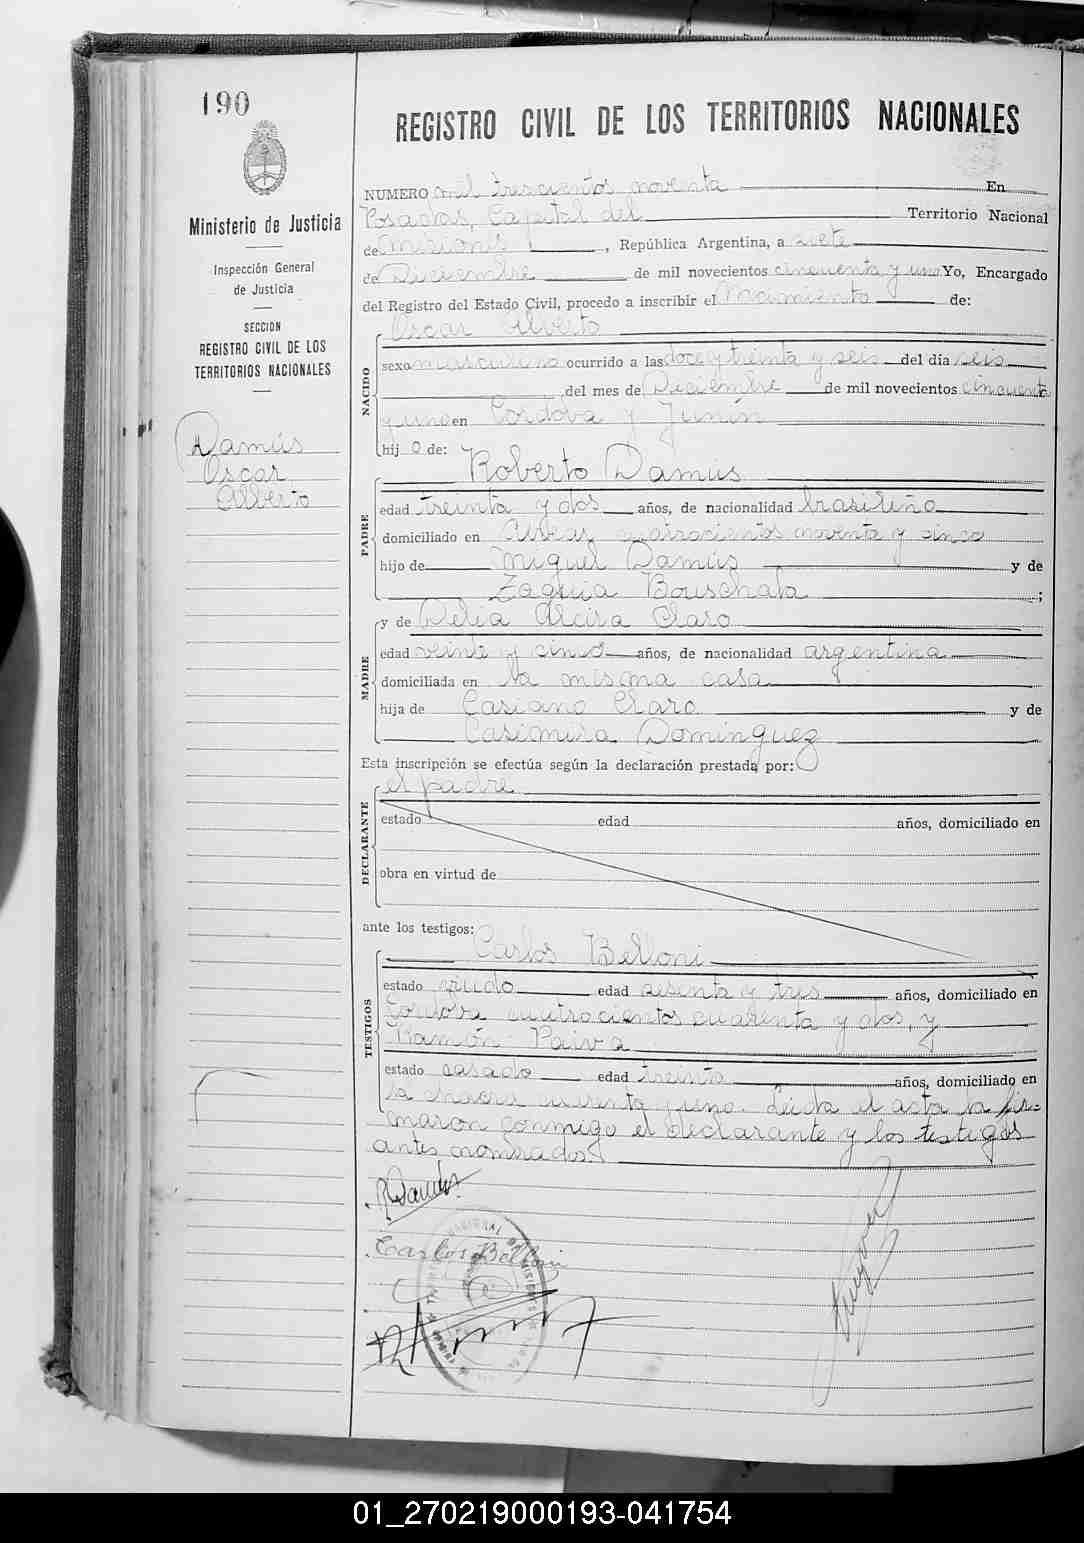 190
REGISTRO CIVIL DE LOS TERRITORIOS NACIONALES
Ministerio de Justicia
Inspección General
de Justicia
SECCION
REGISTRO CIVIL DE LOS
TERRITORIOS NACIONALES
Damús
Oscar
Alberto
NUMERO mil trescientos noventa En
Posadas, Capital del Territorio Nacional
de Misiones, República Argentina, a siete
de Diciembre de mil novecientos cincuenta y uno Yo, Encargado
del Registro del Estado Civil, procedo a inscribir el Nacimiento de:
NACIDO
Oscar Alberto
sexo masculino ocurrido a las doce y treinta y seis del día seis
del mes de Diciembre de mil novecientos cincuenta
y uno en Cordova y Junín
hij o de:
PADRE
Roberto Damús
edad treinta y dos años, de nacionalidad brasileño
domiciliado en cuatrocientos noventa y cinco
hijo de Miguel Damús y de
Zaquia Bouschata;
MADRE
y de Delia Alcira Claro
edad veinte y cinco años, de nacionalidad argentina
domiciliada en la misma casa
hija de Casiano Claro y de
Casimira Dominguez
Esta inscripción se efectúa según la declaración prestada por:
DECLARANTE
el padre
estado edad años, domiciliado en
obra en virtud de
ante los testigos:
TESTIGOS
Carlos Belloni
estado viudo edad sesenta y tres años, domiciliado en
Cordova cuatrocientos cuarenta y dos, y
Ramón Paiva
estado casado edad treinta años, domiciliado en
la chacra y uno. Leida el acta la fir-
maron conmigo el declarante y los testigos
antes nombrados.
R Damús
Carlos Belloni
01_270219000193-041754